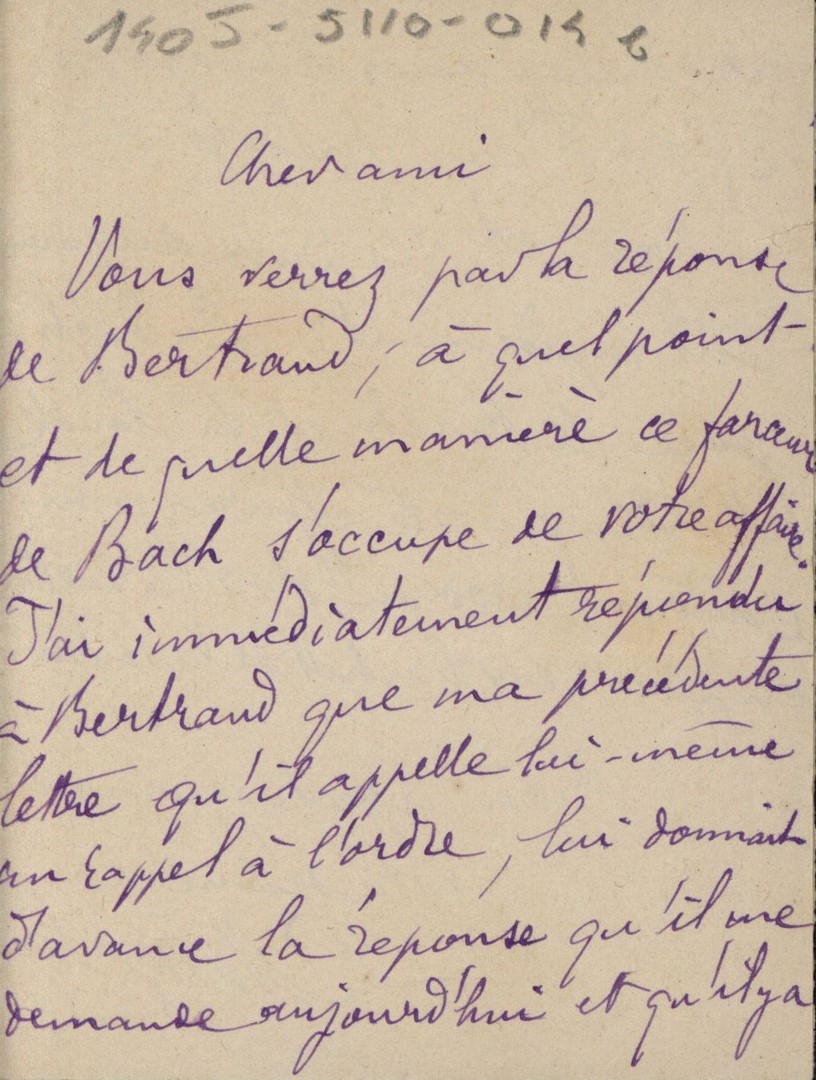 1905-5110-014 6
Cher ami
Vous verrez par la réponse
de Bertrand, à quel point
et de quelle manière ce farceur
de Bach s'occupe de votre affaire.
J'ai immédiatement répondu
à Bertrand que ma précédente
lettre qu'il appelle lui-même
un rappel à l'ordre, lui donnait
d'avance la réponse qu'il me
demande aujourd'hui et qu'il y a